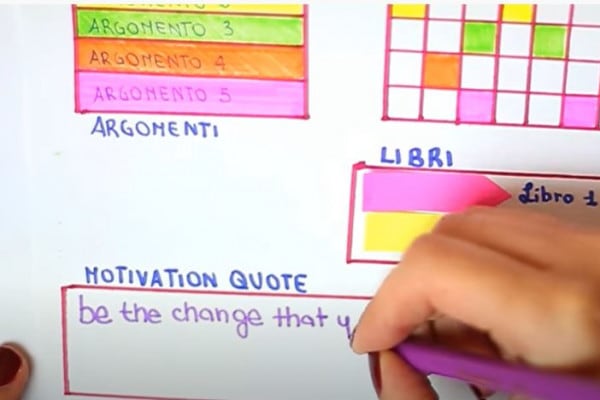 ARGOMENTO 3
ARGOMENTO 4
ARGOMENTO 5
ARGOMENTI
LIBRI
Libro 1
MOTIVATION QUOTE
be the change that y